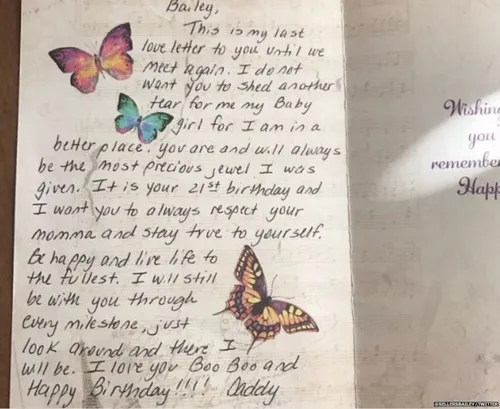 Bailey,
This is my last
love letter to you until we
meet again. I do not
want you to shed another
tear for me my Baby
girl for I am in a
better place. you are and will always
be the most precious jewel I was
given. It is your 21st birthday and
I want you to always respect your
momma and stay true to yourself.
Be happy and live life to
the fullest. I will still
be with you through
every milestone, just
look around and there I
will be. I love you Boo Boo and
Happy Birthday!!!! Daddy
Wishing
you
remember
Happ
@SELLERSBAILEY/TWITTER